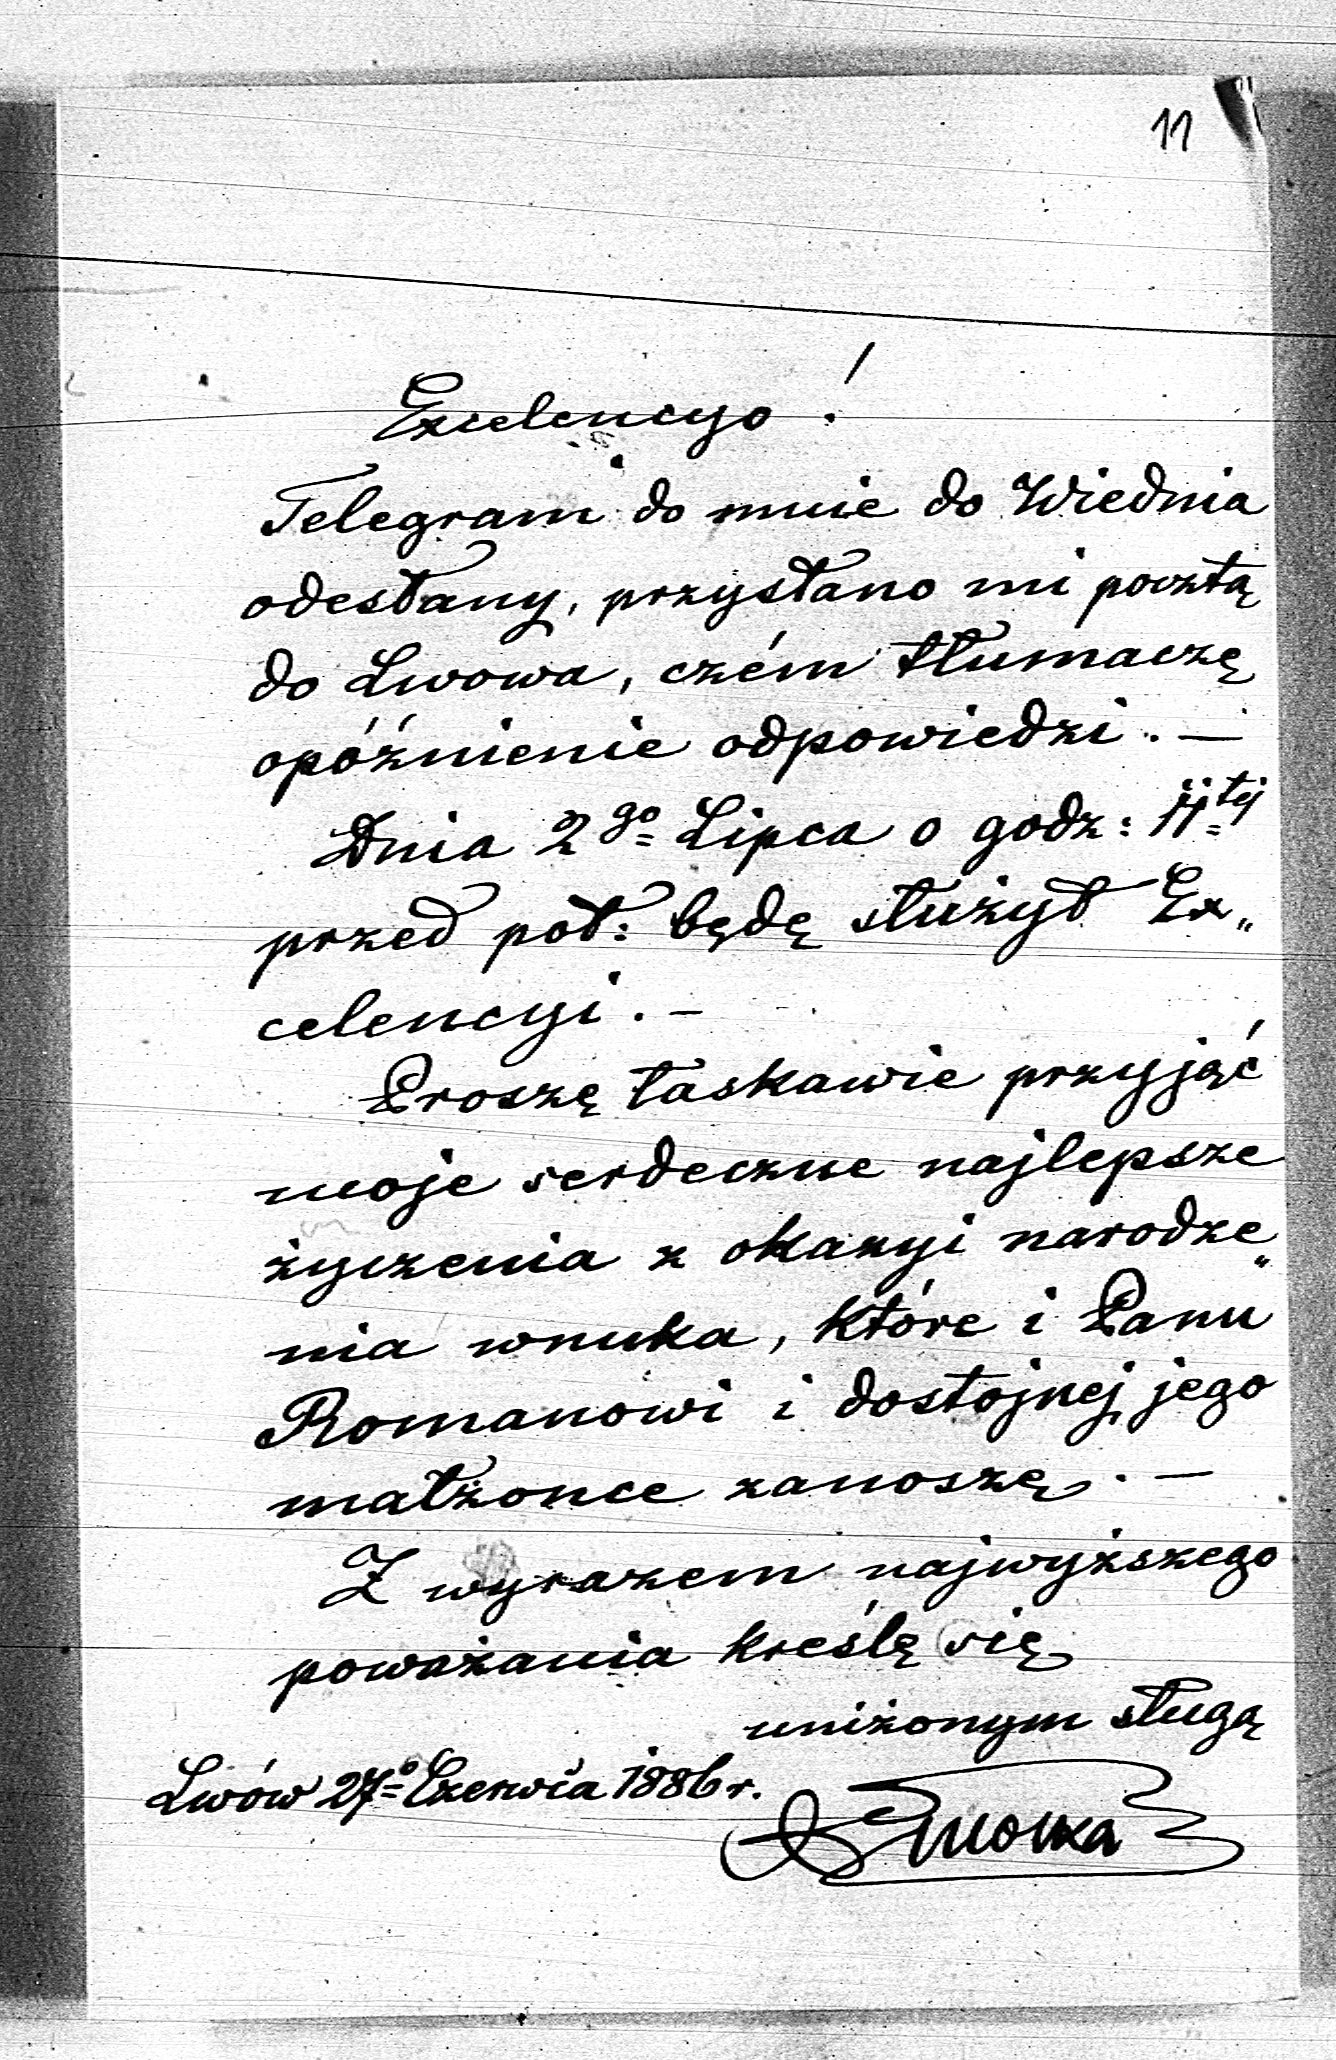 11
Excelencyo!
Telegram do mnie do Wiednia
odesłany, przysłano mi pocztą
do Lwowa, czém tłumaczę
opóźnienie odpowiedzi. —
Dnia 2go Lipca o godz: 11tej
przed poł: będę służył Ex„
celencyi. —
Proszę łaskawie przyjąć
moje serdeczne najlepsze
życzenia z okazyi narodze„
nia wnuka, które i Panu
Romanowi i dostojnej jego
małżonce zanoszę. —
Z wyrazem najwyższego
poważania kreślę się
uniżonym sługą
Lwów 27o Czerwca 1886 r.
Smolka